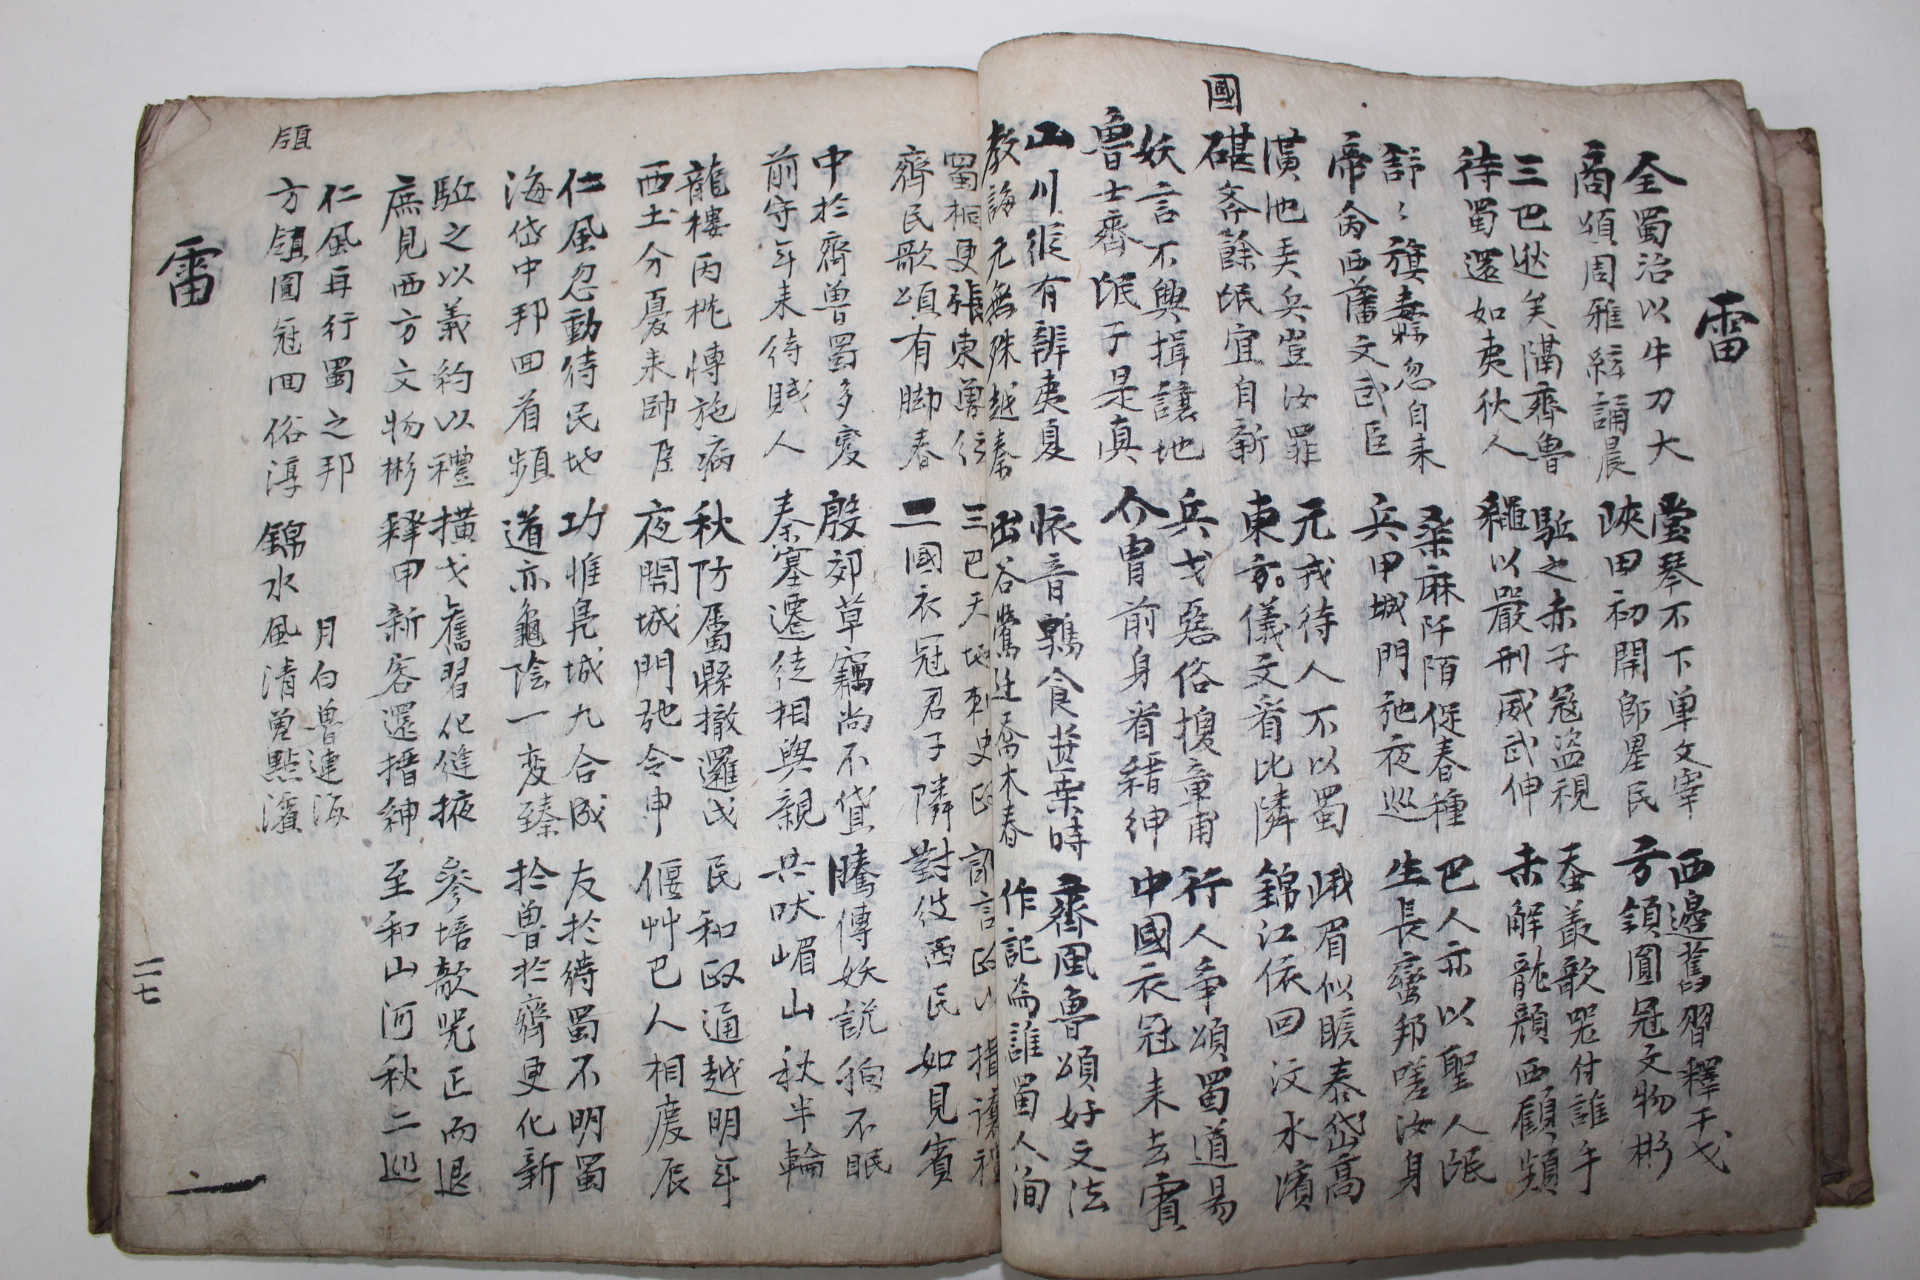 雷
全蜀治以牛刀大 瑩琴不下單父宰 西邊舊習釋干戈
商頌周雅絃誦晨 陝甲初開郎星民 方領圓冠文物彬
三巴逖矣隔齊魯 駈之赤子冦盜視 蚕叢歌咒付誰手
待蜀還如夷狄人 繩以嚴刑威武伸 未解龍顔西顧頻
舒〻旗纛忽自来 桑麻阡陌促春種 巴人亦以聖人氓
帝命西藩文武臣 兵甲城門弛夜巡 生長蠻邦嗟汝身
潢池美兵豈汝罪 元戎待人不以蜀 峨眉似瞻泰岱高
國
碪斧餘氓宜自新 東方儀文看比隣 錦江依回汶水濱
妖言不興揖讓地 兵戈惡俗換章甫 行人争頌蜀道易
魯士齊氓子是真 介冑前身看縉紳 中國衣冠来去賓
山川縱有辭夷夏 懷音鴞食葚桑時 齊風魯頌好文法
教誨元無殊越秦 出谷鶯迁喬木春 作記為誰蜀人洵
蜀桐更張東魯 三巴天地刺史政 言政以揖讓禮
齊民歌頌有脚春 二國衣冠君子隣 對彼西民如見賓
中於齊魯蜀多变 殷郊草竊尚不貸 騰傳妖説狛不眠
前守年来待賊人 秦塞遷徒相與親 共吠嵋山秋半輪
龍樓丙枕慱施病 秋防属縣撤邏戍 民和政通越明年
西土分憂来帥臣 夜開城門弛令申 偃艸巴人相慶辰
仁風忽動待民地 功惟亮城九合成 友於待蜀不明蜀
海岱中邦回首頻 道亦龜陰一变臻 於魯於齊更化新
駈之以義約以禮 橫戈舊習化縫掖 參培歌咒正而退
庶見西方文物彬 釋甲新客還搢紳 至和山河秋二巡
仁風再行蜀之邦 月白魯連海
領
方領圓冠回俗淳 錦水風清曾點濱
雷
二七